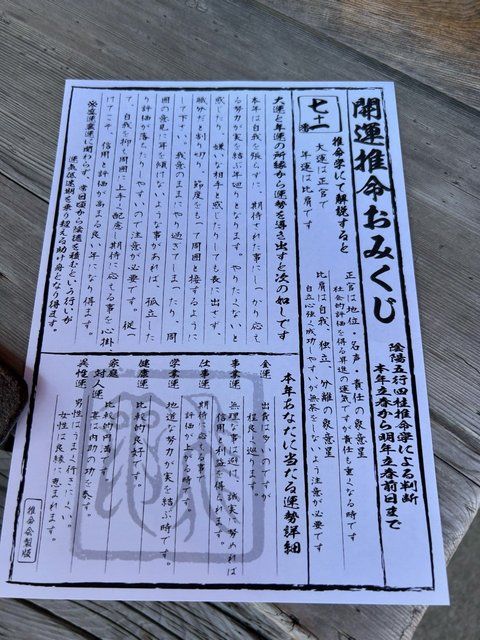 開運推命おみくじ
陰陽五行四柱推命学による判断
本年立春から明年立春前日まで
七十一番
推命学にて解説すると
大運は正官で
年運は比肩です
正官は地位・名声・責任の象意星
社会的評価を得る昇進の運気ですが責任も重くなる時です
比肩は自我、独立、分離の象意星
自立心強く成功しやすいが無茶をしないよう注意が必要です
大運と年運の所縁から運勢を導き出すと次の如しです
本年は自我を張らずに、期待された事にしっかり応え
る努力が実を結ぶ年廻りとなります。やりたくないと
感じたり、嫌いな相手と感じたりしても表に出さず、
職分だと割り切り、節度をもって周囲と接するように
して下さい。我を求のままにやり過ぎてしまったり、周
囲の意見に耳を傾けないような事があれば、孤立した
り評価が落ちたりしやすいので注意が必要です。従っ
て、自我を抑え周囲に上手に配慮し期待に応える事を心掛
けてこそ、信用と評価が高まる良い年になり得ます。
栄度運衰運に関わらず、常日頃から陰徳を積むという行いが
運気低迷期を乗り超える助け舟となり得ます。
本年あなたに当たる運勢詳細
金運
出費は多いのですが
程良く廻ります。
事業運
無理な事は避け、誠実に努めれば
信用と利益を得られます。
仕事運
期待に応える事で
評価が上がる時です。
学業運
地道な努力が実を結ぶ時です。
健康運
比較的良好です。
家庭
対人運
比較的円満です。
妻は内助の功を奏す。
異性運
男性はうまく行きにくい。
女性は良縁に恵まれます。
推命会製版